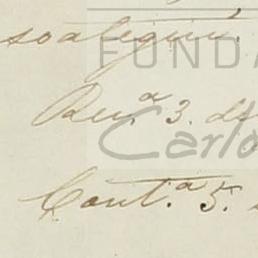 soalegui.
FUNDA
Reu.ª 3. de
Carlo
Cont.ª 5.